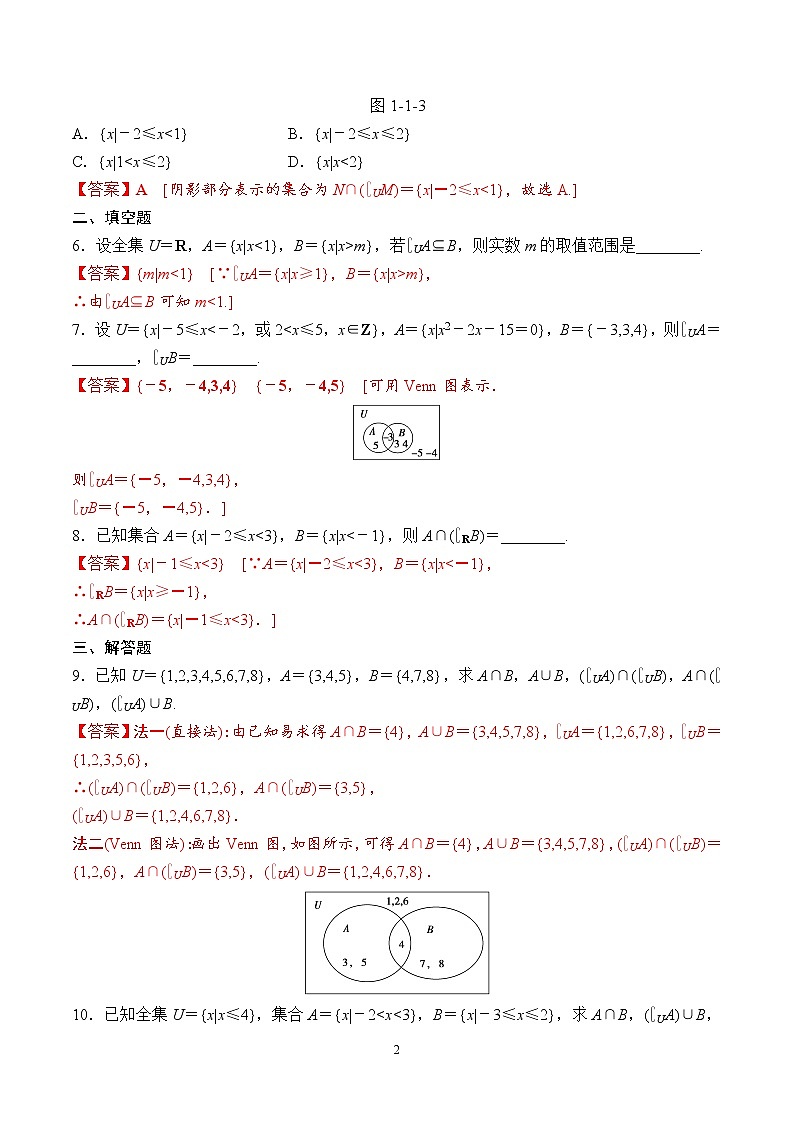 图1-1-3
A．{x|－2≤x<1}　　B．{x|－2≤x≤2}
C．{x|1<x≤2}　　D．{x|x<2}
【答案】A　[阴影部分表示的集合为N∩(∁UM)＝{x|－2≤x<1}，故选A.]
二、填空题
6．设全集U＝R，A＝{x|x<1}，B＝{x|x>m}，若∁UA⊆B，则实数m的取值范围是________.
【答案】{m|m<1}　[∵∁UA＝{x|x≥1}，B＝{x|x>m}，
∴由∁UA⊆B可知m<1.]
7．设U＝{x|－5≤x<－2，或2<x≤5，x∈Z}，A＝{x|x²－2x－15＝0}，B＝{－3,3,4}，则∁UA＝
________，∁UB＝________.
【答案】{－5，－4,3,4}　{－5，－4,5}　[可用Venn图表示．
U
A B
-3
5 3 4
-5 -4
则∁UA＝{－5，－4,3,4}，
∁UB＝{－5，－4,5}．]
8．已知集合A＝{x|－2≤x<3}，B＝{x|x<－1}，则A∩(∁RB)＝________.
【答案】{x|－1≤x<3}　[∵A＝{x|－2≤x<3}，B＝{x|x<－1}，
∴∁RB＝{x|x≥－1}，
∴A∩(∁RB)＝{x|－1≤x<3}．]
三、解答题
9．已知U＝{1,2,3,4,5,6,7,8}，A＝{3,4,5}，B＝{4,7,8}，求A∩B，A∪B，(∁UA)∩(∁UB)，A∩(∁
UB)，(∁UA)∪B.
【答案】法一(直接法)：由已知易求得A∩B＝{4}，A∪B＝{3,4,5,7,8}，∁UA＝{1,2,6,7,8}，∁UB＝
{1,2,3,5,6}，
∴(∁UA)∩(∁UB)＝{1,2,6}，A∩(∁UB)＝{3,5}，
(∁UA)∪B＝{1,2,4,6,7,8}．
法二(Venn图法)：画出Venn图，如图所示，可得A∩B＝{4}，A∪B＝{3,4,5,7,8}，(∁UA)∩(∁UB)＝
{1,2,6}，A∩(∁UB)＝{3,5}，(∁UA)∪B＝{1,2,4,6,7,8}．
U 1,2,6
A B
4
3，5 7，8
10．已知全集U＝{x|x≤4}，集合A＝{x|－2<x<3}，B＝{x|－3≤x≤2}，求A∩B，(∁UA)∪B，
2